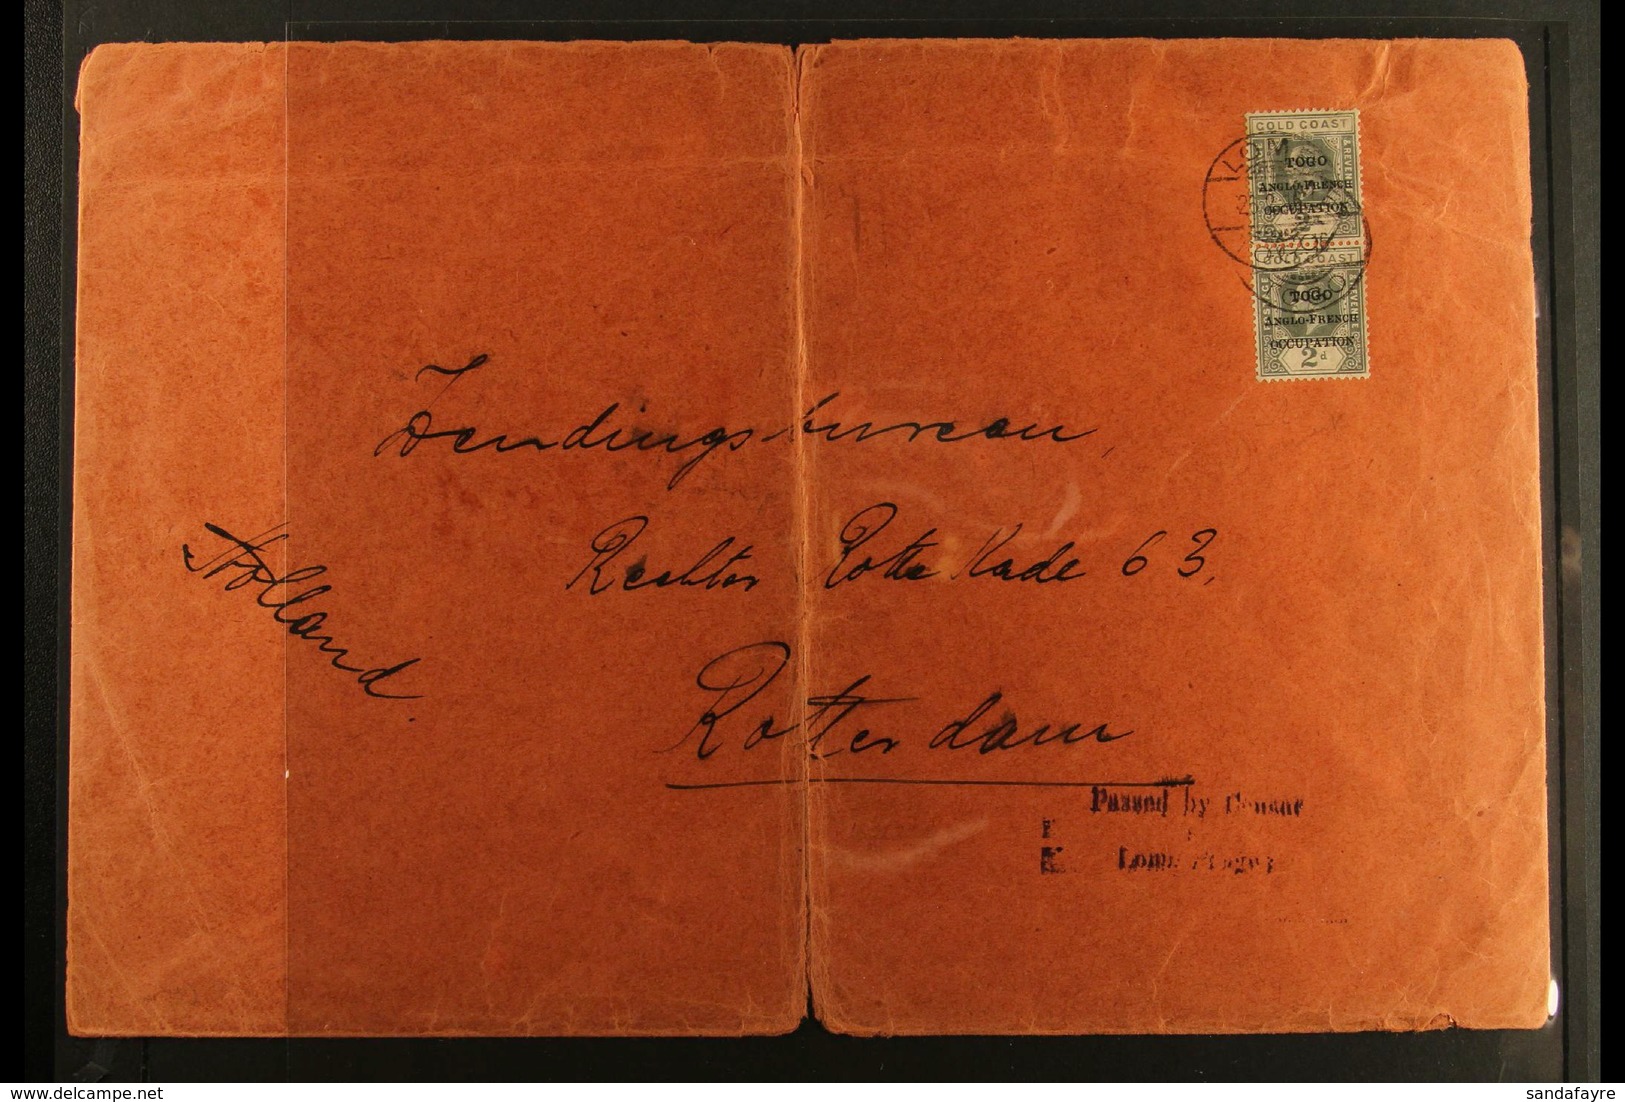 GOLD COAST
TOGO
ANGLO-FRENCH
OCCUPATION
GOLD COAST
TOGO
ANGLO-FRENCH
OCCUPATION
2d
LOM
TOGO
Zendingsbureau,
Rechter Rotte Kade 63,
Rotterdam
Holland.
Passed by Censor
K Lome Togo
sandafayre